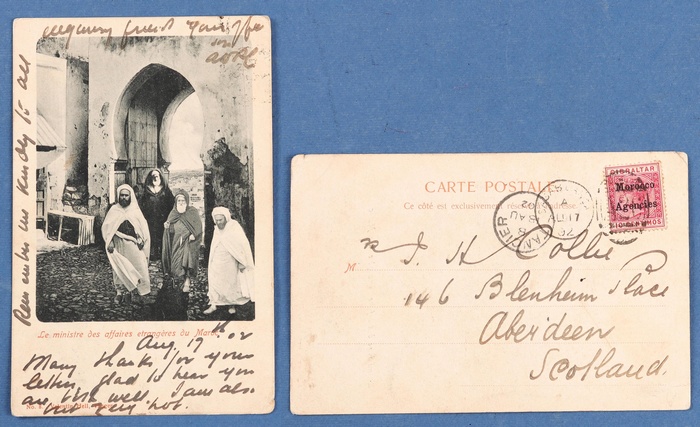 Remember me kindly to all
Le ministre des affaires étrangères du Maroc
Aug. 17th 02
Many thanks for your
letter, glad to hear you
are both well. I am also
but very hot.
CARTE POSTALE
Ce côté est exclusivement réservé
GIBRALTAR
Morocco
Agencies
TANGIER
AU
02
M
J. H. Collie
146 Blenheim Place
Aberdeen
Scotland.